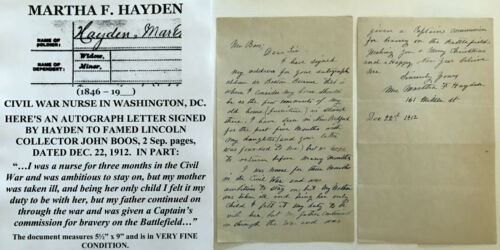 MARTHA F. HAYDEN
NAME OF SOLDIER:
Hayden, Mark
NAME OF DEPENDENT:
Widow,
Minor,
(1846 - 19__)
CIVIL WAR NURSE IN WASHINGTON, DC.
HERE'S AN AUTOGRAPH LETTER SIGNED
BY HAYDEN TO FAMED LINCOLN
COLLECTOR JOHN BOOS, 2 Sep. pages,
DATED DEC. 22, 1912. IN PART:
“…I was a nurse for three months in the Civil
War and was ambitious to stay on, but my mother
was taken ill, and being her only child I felt it my
duty to be with her, but my father continued on
through the war and was given a Captain's
commission for bravery on the Battlefield…”
The document measures 5½” x 9” and is in VERY FINE
CONDITION.
Mr Boos:
Dear Sir:
I have signed
my address for your autograph
album as Boston because that is
where I consider my home should
be as the few remnants of my
old home (furniture) is stored
there. I have been in New Bedford
for the past five months with
my daughter (and your letter
was forwarded to me) but I hope
to return before many months
I was nurse for three months
in the Civil War and was
ambitious to stay on, but my Mother
was taken ill and being her only
child I felt it my duty to be
with her, but my father continued
on through the war and was
given a Captain's Commission
for bravery on the Battlefield.
Wishing you a Merry Christmas
and a Happy New Year believe
me
Sincerely Yours
Mrs Martha F. Hayden
161 Middle st
Dec 22nd 1912